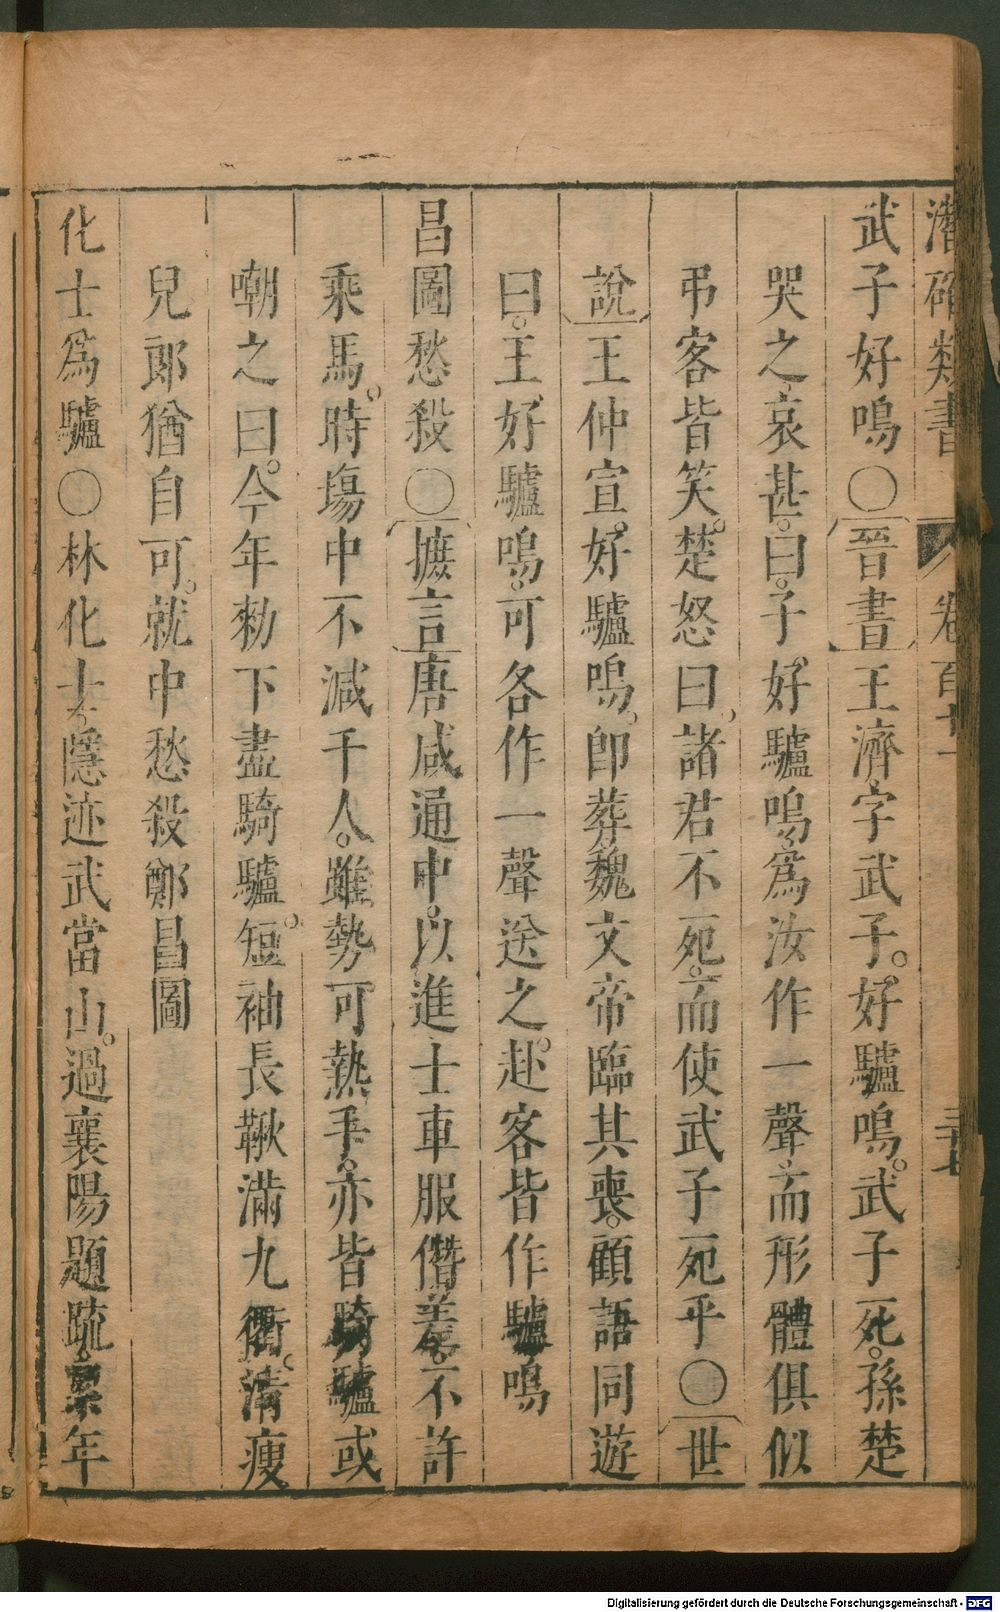 潛確類書 卷百十一 三十七
武子好鳴〇晉書王濟字武子。好驢鳴。武子死。孫楚
哭之哀甚。曰。子好驢鳴。爲汝作一聲。而形體俱似
弔客皆笑。楚怒曰。諸君不死。而使武子死乎〇世
說王仲宣。好驢鳴。卽葬。魏文帝臨其喪。顧語同遊
曰。王好驢鳴。可各作一聲送之。赴客皆作驢鳴
昌圖愁殺〇摭言唐咸通中。以進士車服僭差。不許
乘馬。時塲中不減千人。雖勢可熱手。亦皆騎驢或
嘲之曰。今年勑下盡騎驢。短袖長鞦滿九衢。清瘦
兒郎猶自可。就中愁殺鄭昌圖
化士爲驢〇林化士。隱迹武當山。過襄陽題䟽。累年
Digitalisierung gefördert durch die Deutsche Forschungsgemeinschaft - DFG